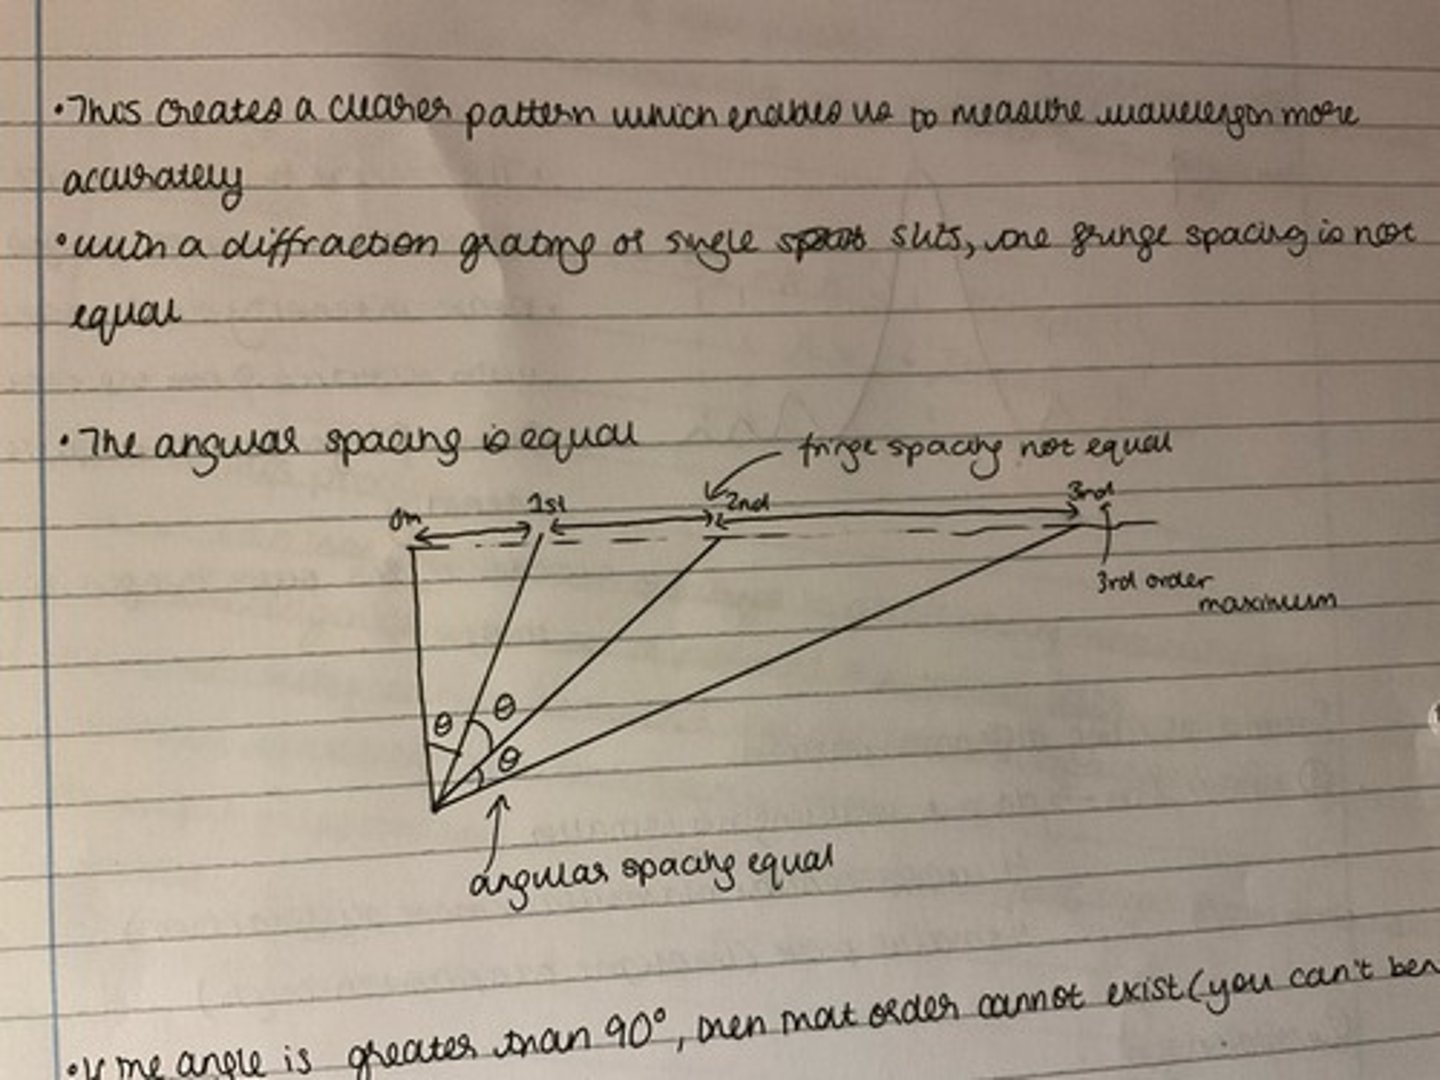 • This creates a clearer pattern which enables us to measure wavelength more
accurately
• with a diffraction grating or single slits, the fringe spacing is not
equal
• The angular spacing is equal
fringe spacing not equal
0th
1st
2nd
3rd
3rd order
maximum
θ
θ
θ
angular spacing equal
• If the angle is greater than 90°, then that order cannot exist (you can't